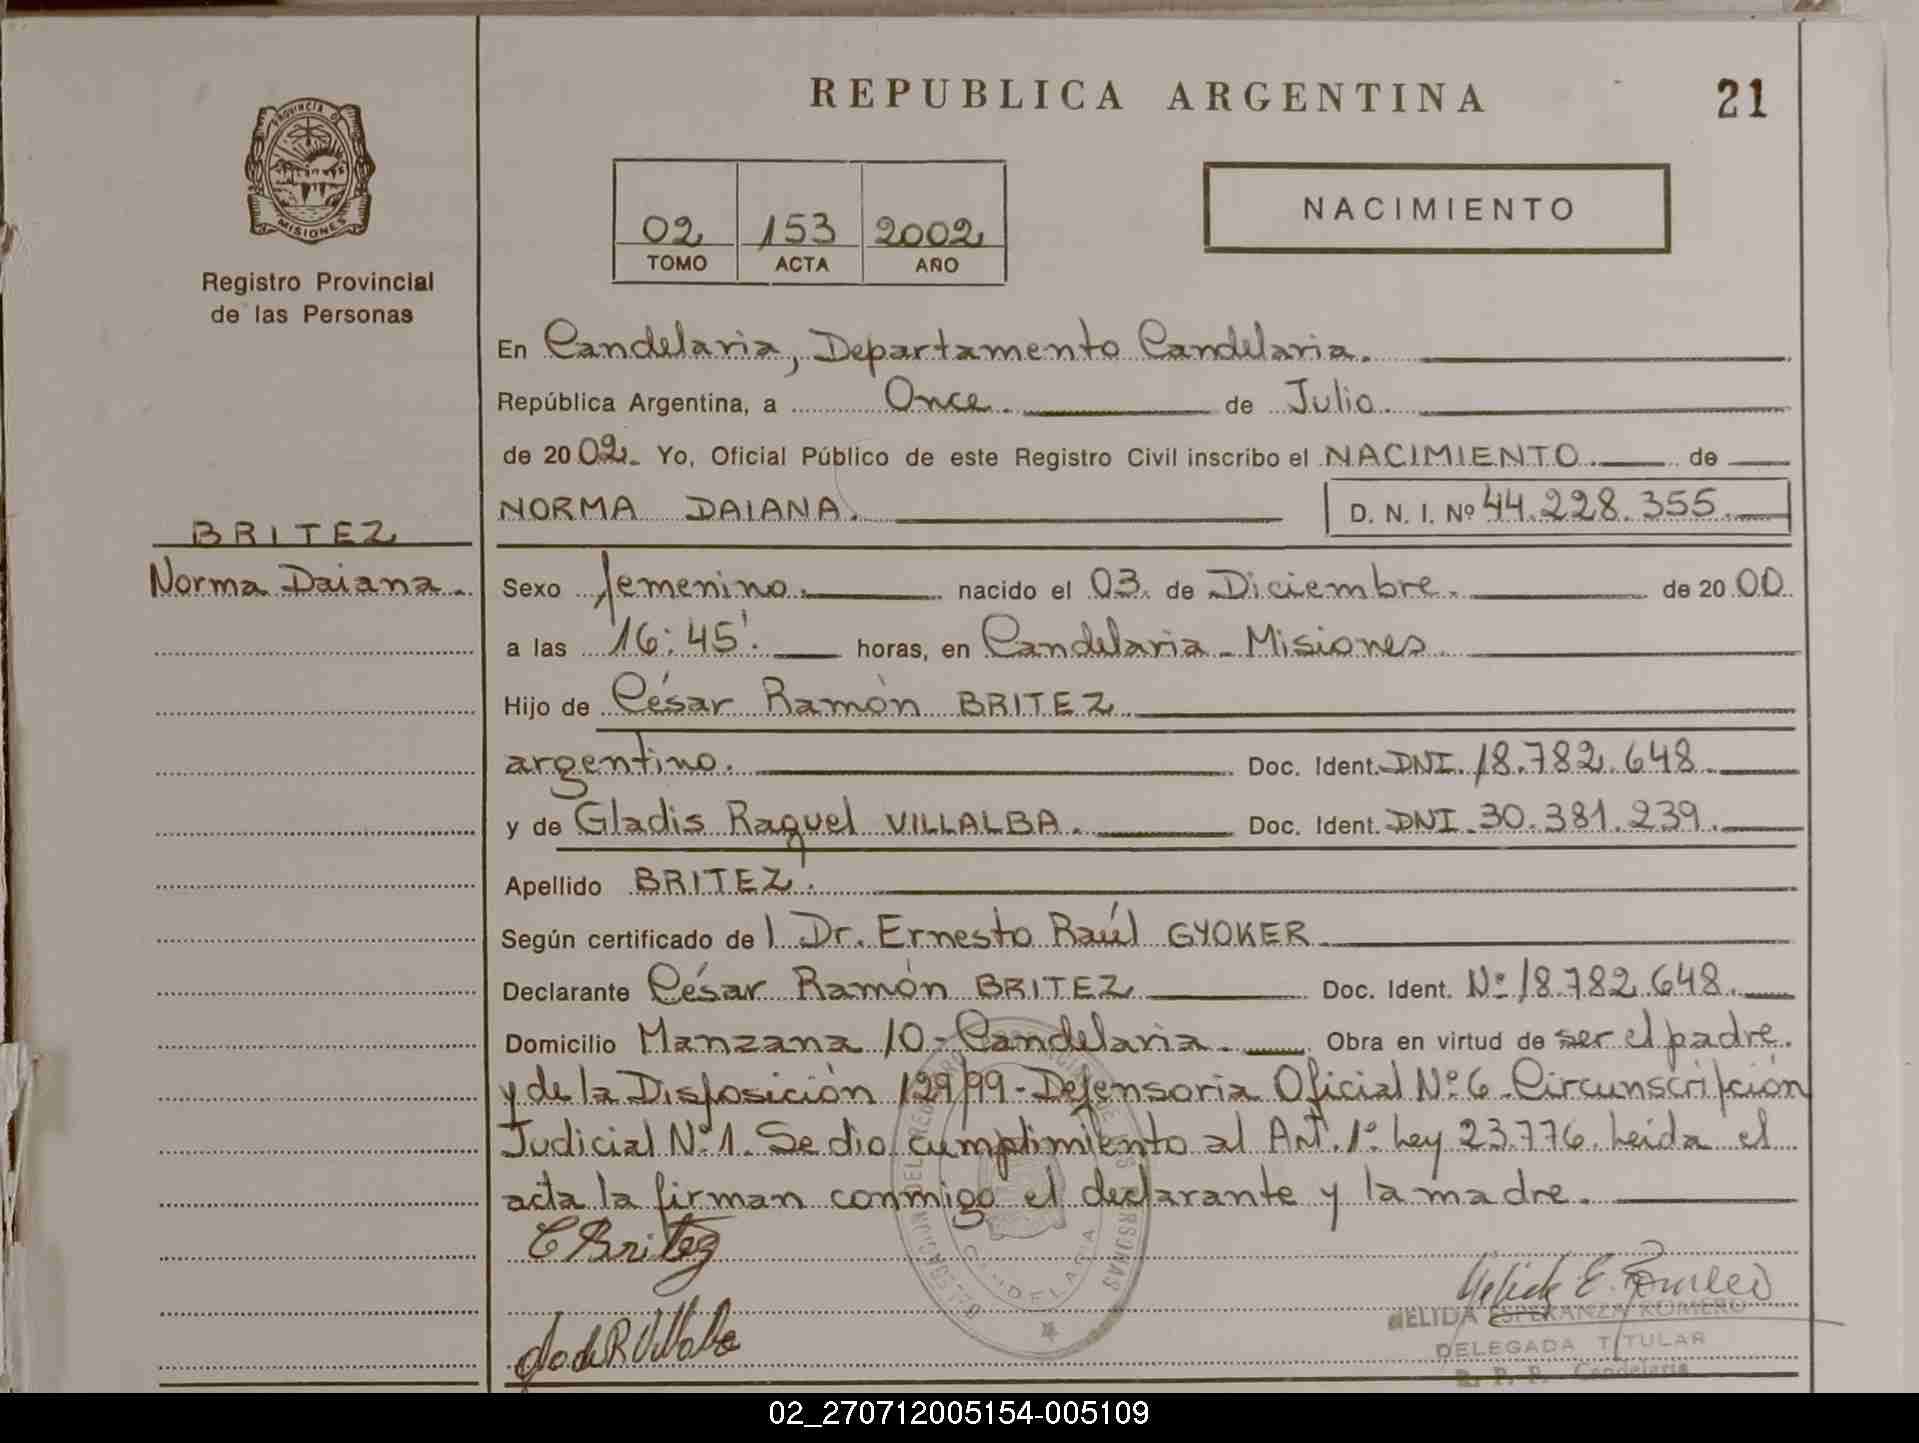 REPUBLICA ARGENTINA
21
PROVINCIA DE
MISIONES
Registro Provincial
de las Personas
02 153 2002
TOMO ACTA AÑO
NACIMIENTO
En Candelaria, Departamento Candelaria.
República Argentina, a Once. de Julio.
de 2002. Yo, Oficial Público de este Registro Civil inscribo el NACIMIENTO. de
NORMA DAIANA. D. N. I. Nº 44.228.355.
BRITEZ
Norma Daiana.
Sexo femenino. nacido el 03. de Diciembre. de 2000.
a las 16:45'. horas, en Candelaria - Misiones.
Hijo de César Ramón BRITEZ.
argentino. Doc. Ident. DNI. 18.782.648.
y de Gladis Raquel VILLALBA. Doc. Ident. DNI. 30.381.239.
Apellido BRITEZ.
Según certificado del Dr. Ernesto Raúl GYOKER.
Declarante César Ramón BRITEZ Doc. Ident. Nº 18.782.648.
Domicilio Manzana 10 - Candelaria. Obra en virtud de ser el padre.
y de la Disposición 129/99 - Defensoria Oficial Nº 6 - Circunscripción
Judicial Nº 1. Se dio cumplimiento al Art. 1º Ley 23.776. Leída el
acta la firman conmigo el declarante y la madre.
C Britez
CANDELARIA
NELIDA ESPERANZA ROMERO
DELEGADA TITULAR
R. P. P. Candelaria
02_270712005154-005109